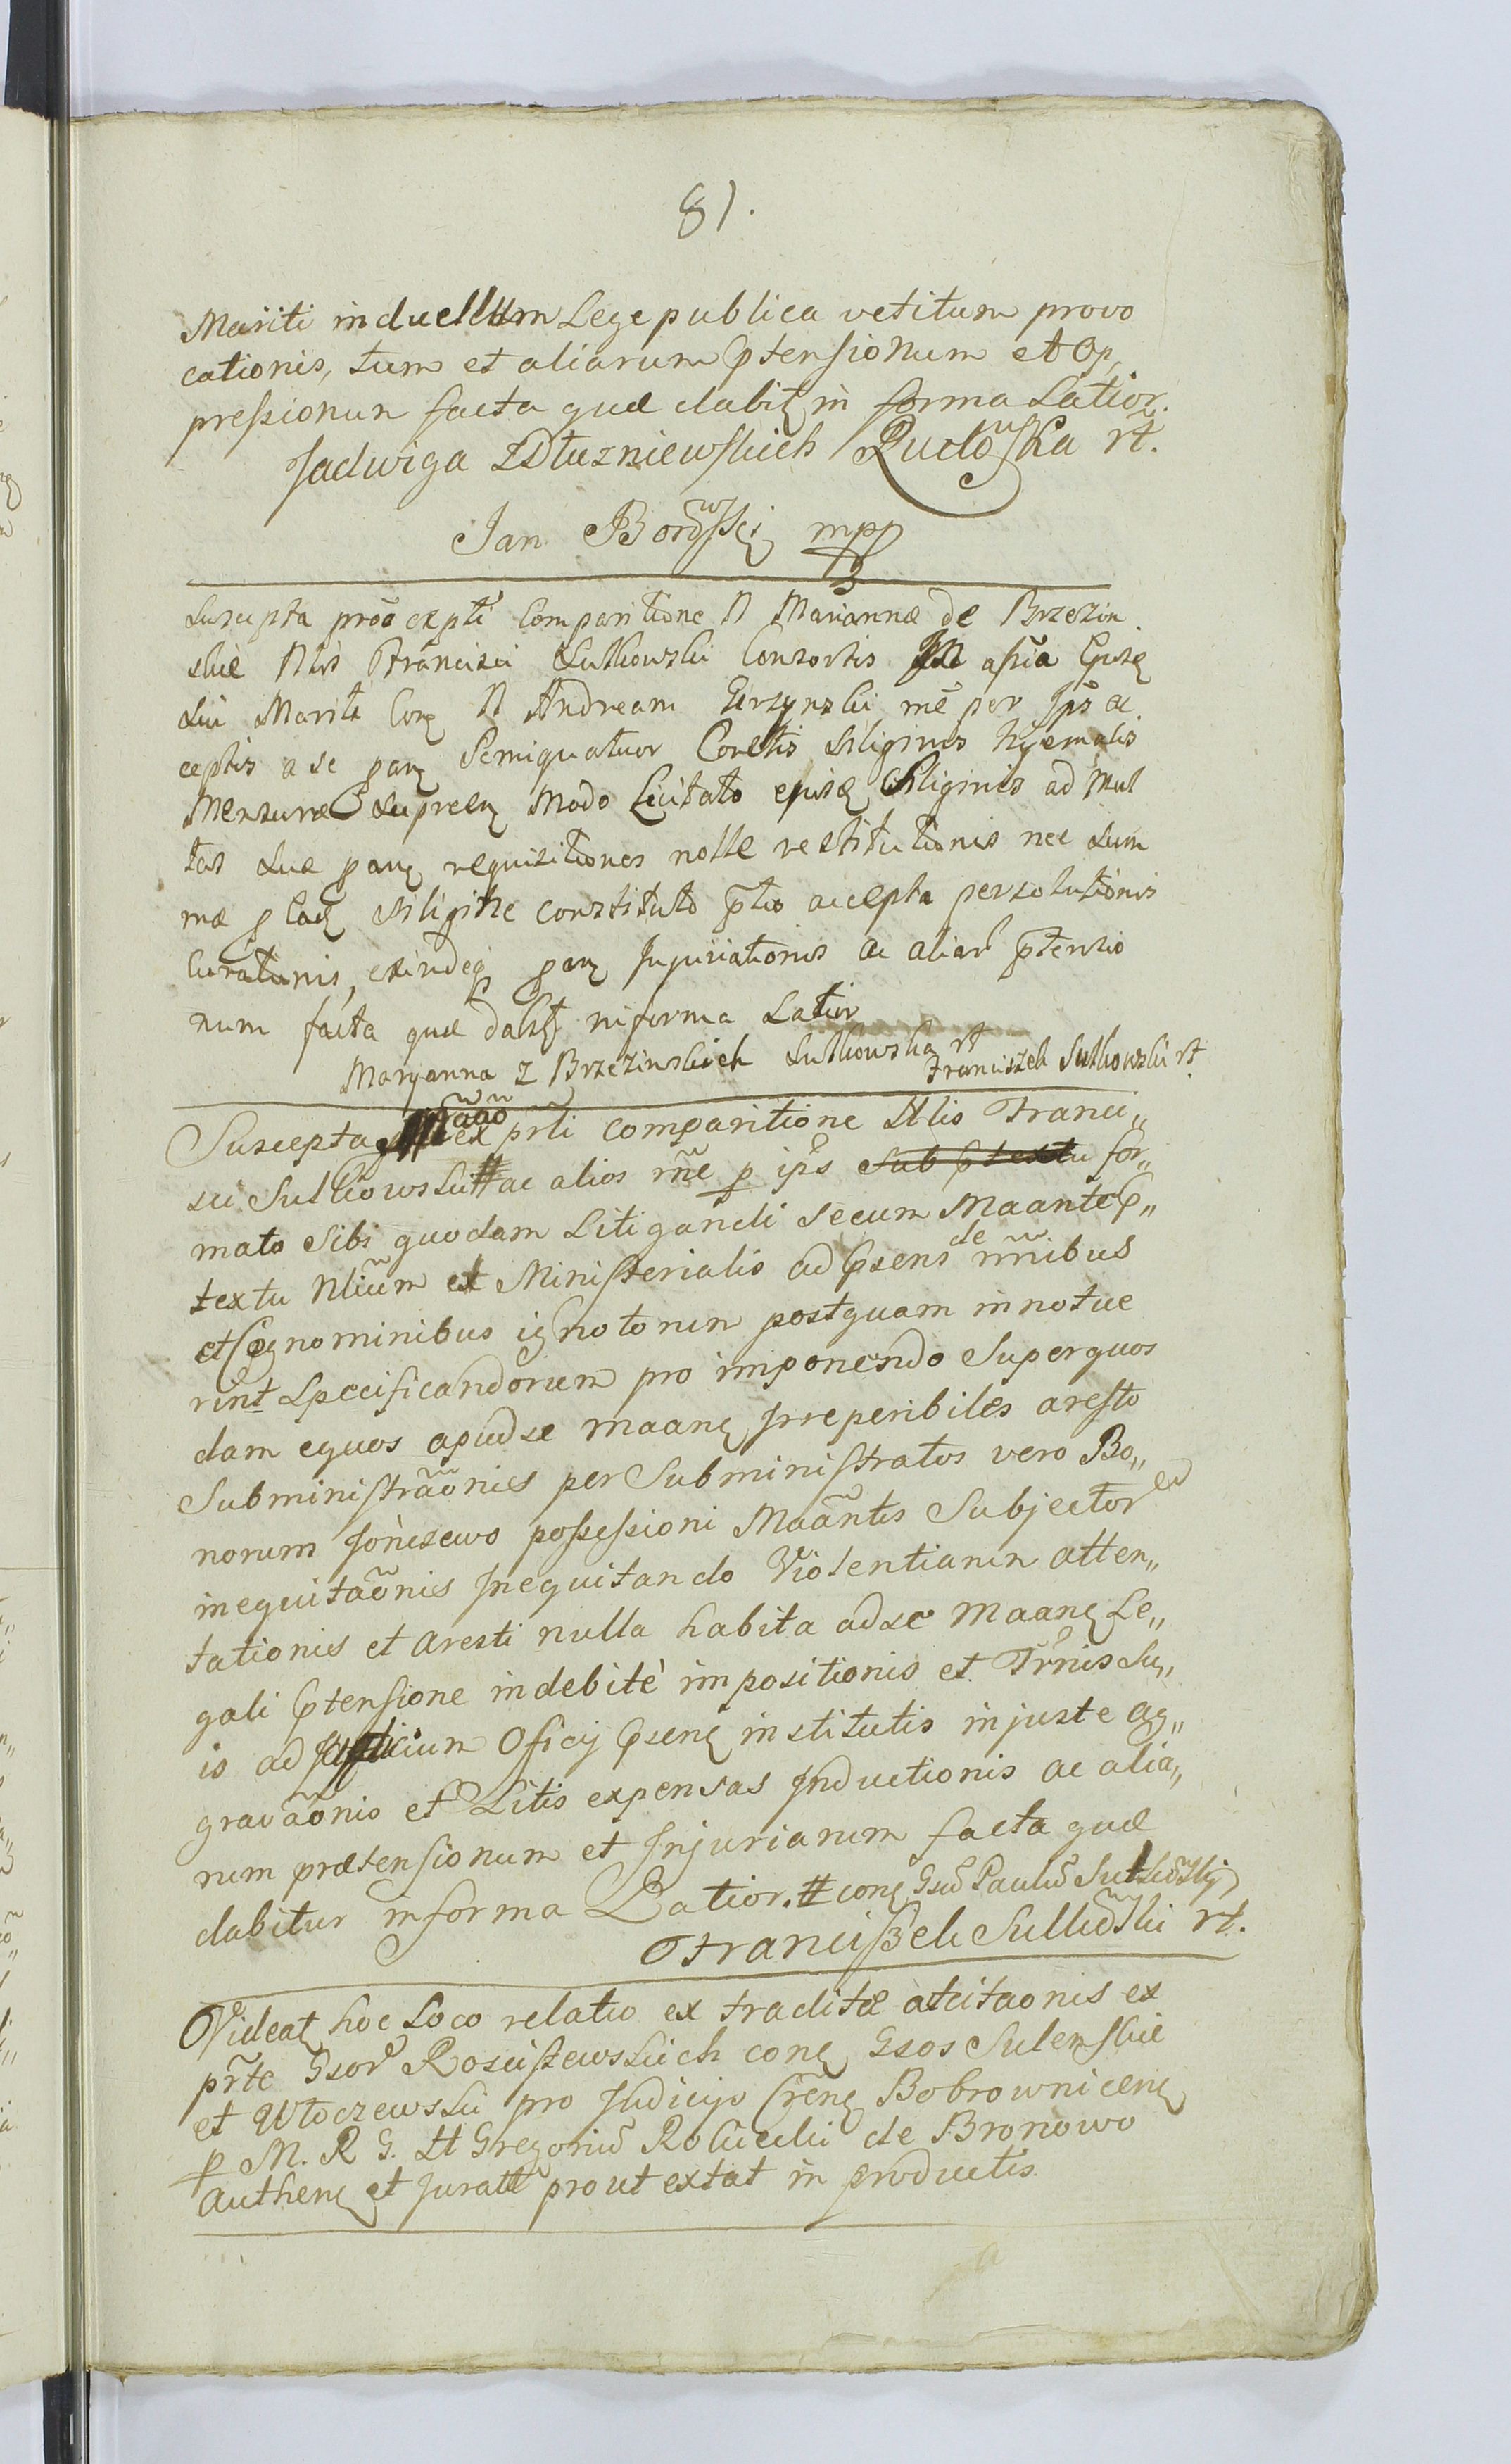 81.
Mariti in duellum Lege publica vetitum provo
cationis, tum et aliarum Ptensionum et Op,
pressionum facta quæ dabit in forma Latior.
Jadwiga z Dłuzniewskich Rutkowska rt.
Jan Borowski mpp
Suscepta prõa ex pti Comparitione N Mariannæ de Brzezin
skie Nlis Francisci Sutkowski Consortis asña Ejusq
Sui Mariti Conq N Andream Gurzynski mẽ per Ips ac
ceptis a se parq Semiquatuor Coretis Siliginis hyemalis
Mensuræ Supreq modo Licitato ejusq Siliginis ad mul
tas suæ parq requisitiones nolle restitutionis nec sum
mæ p Eadq siligine constituto ptio accepta persolutionis
Curationis, exindeq parq Injuriationis ac aliar ptensio
num facta quæ dabit in forma Latior
Maryanna z Brzezinskich Sutkowska rt
Franciszek Sutkowski rt
Suscepta ex prti comparitione Nlis Franci„
sci Sutkowski # ac alios mẽ p ips sub ptextu for„
mato sibi quodam Litigandi secum Maante P„
textu Nlium et Ministerialis ad Psens de nñibus
et Cognominibus ignotorum postquam innotue
rint Specificandorum pro imponendo Super quos
dam equos apud se maanq Irreperibiles aresto
Subministrãonis per Subministratos vero Bo„
norum Jonczewo possessioni Maantis Subjector
inequitãonis Inequitando Violentiarum atten„
tationis et aresti nulla habita ad se Maanq Le„
gali Ptensione indebitè impositionis et Trnis Su„
is ad Judicium Oficij Psenq institutis injuste ag„
gravãonis et Litis expensas Inductionis ac alia„
rum prætensionum et Injuriarum facta quæ
dabitur in forma Latior. # conq Gsũ Paulũ Sutkowski
Franciszek Sutkowski rt.
Videat hoc Loco relatio ex tradita atcitaonis ex
prte Gsor Rosciszewskich conq Gsos Sulenskie
et Włoczewski pro Judicijs Crenq Bobrownicenq
p M. R G. H Gregoriũ Rokicki de Bronowo
Authenq et Jurat prout extat in productis